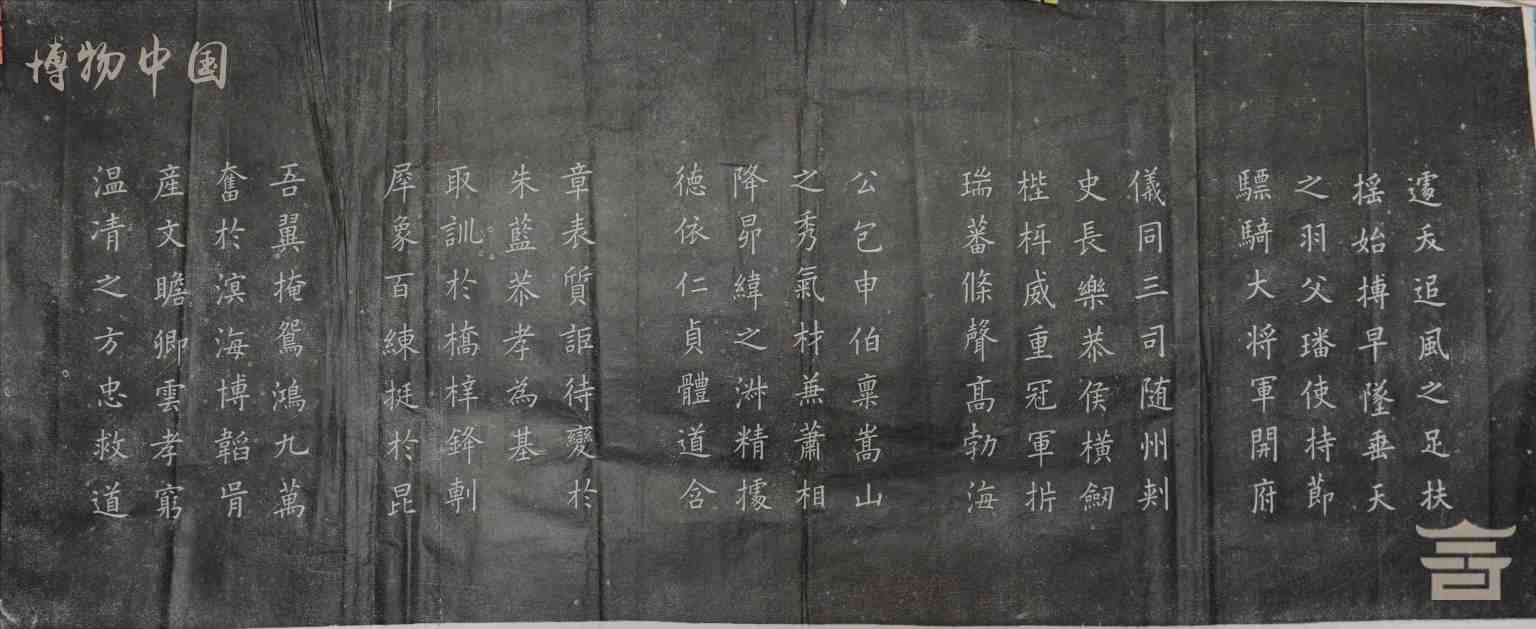 博物中国
遽夭追風之足扶
搖始搏早墜垂天
之羽父璠使持節
驃騎大将軍開府
儀同三司随州刺
史長樂恭侯橫劒
梐枑威重冠軍析
瑞蕃條聲髙勃海
公包申伯稟嵩山
之秀氣材兼蕭相
降昴緯之淑精據
德依仁貞體道含
章表質詎待變於
朱藍恭孝為基
取訓於橋梓鋒剸
犀象百練挺於昆
吾翼掩鴛鴻九萬
奮於溟海博韜胥
產文瞻卿雲孝窮
温凊之方忠救道